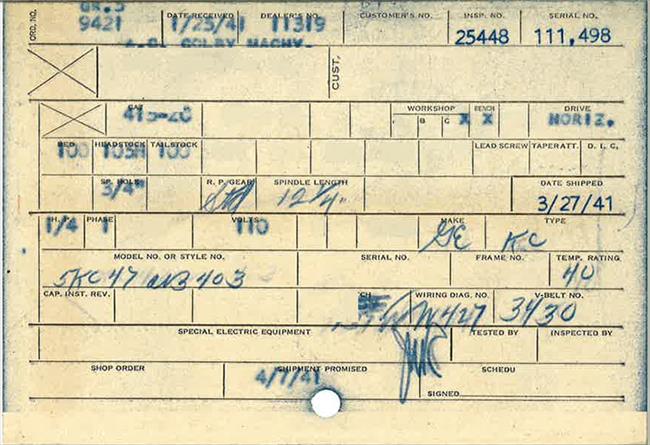 GR.5
ORD. NO. 9421 DATE RECEIVED 1/25/41 DEALER'S NO. 11319 CUSTOMER'S NO. INSP. NO. 25448 SERIAL NO. 111,498
A.C. COLBY MACHY.
CUST.
CAT 415-2C WORKSHOP B C X BENCH X DRIVE HORIZ.
BED 100 HEADSTOCK 103H TAILSTOCK 100 LEAD SCREW TAPER ATT. D. I. C.
SP. HOLE 3/4" R. P. GEAR Std SPINDLE LENGTH 12 1/4" DATE SHIPPED 3/27/41
H. P. 1/4 PHASE 1 VOLTS 110 MAKE GE TYPE KC
MODEL NO. OR STYLE NO. 5KC47 AB403 SERIAL NO. FRAME NO. TEMP. RATING 40
CAP. INST. REV. CH WIRING DIAG. NO. W427 V-BELT NO. 3430
SPECIAL ELECTRIC EQUIPMENT TESTED BY INSPECTED BY
SHOP ORDER SHIPMENT PROMISED 4/7/41 SCHEDU
SIGNED